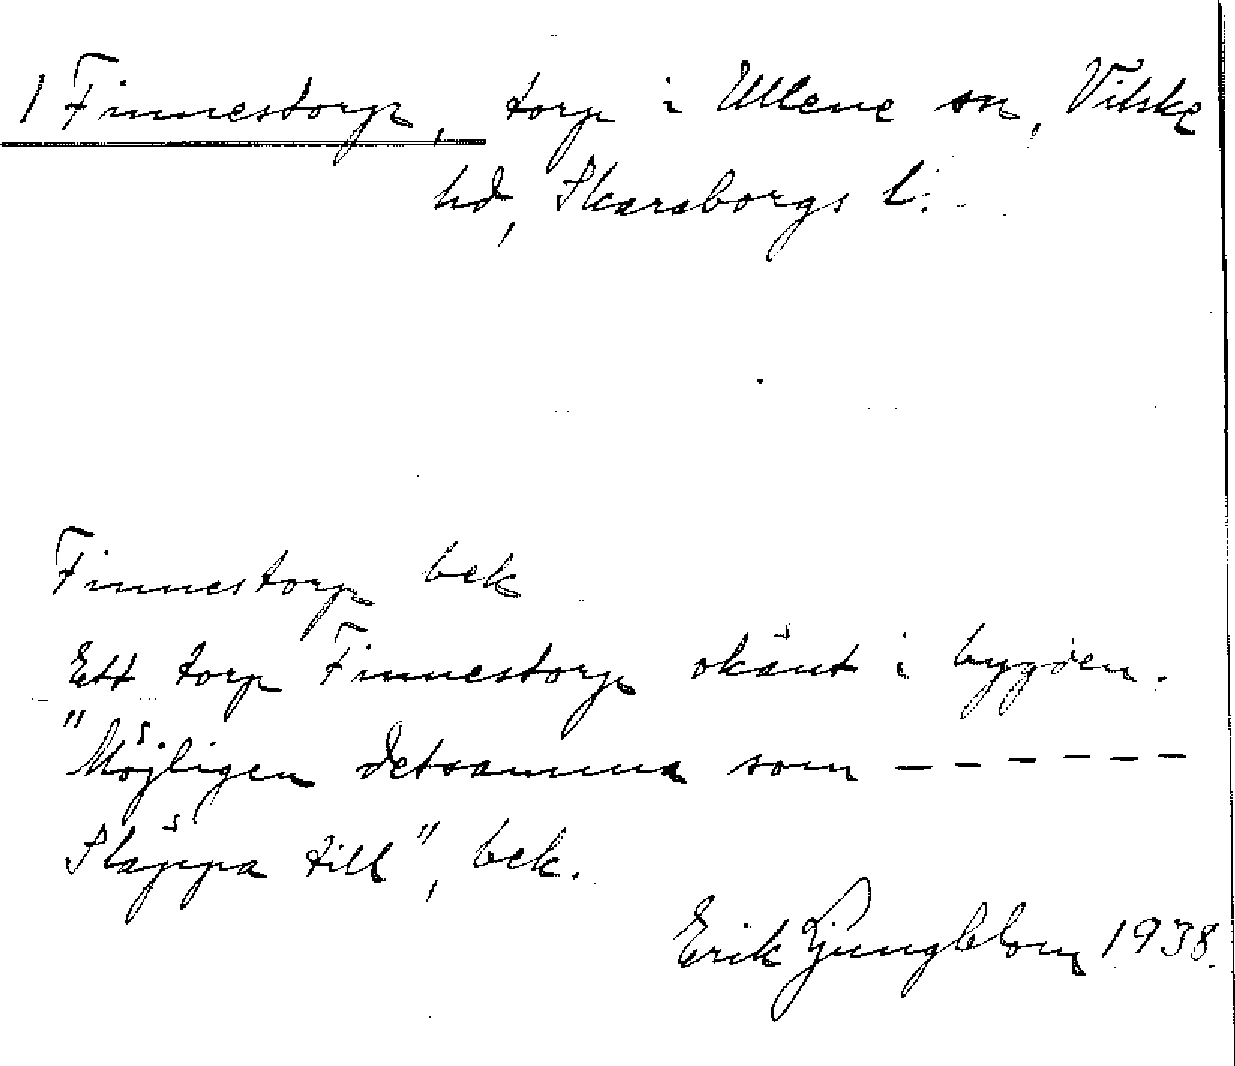 1 Finnestorp, torp i Ullene sn, Vilske
hd, Skaraborgs l.
Finnestorp bek
Ett torp Finnestorp okänt i bygden.
"Möjligen detsamma som – – – – – –
Släppa till", bek.
Erik Ljungblom 1938.